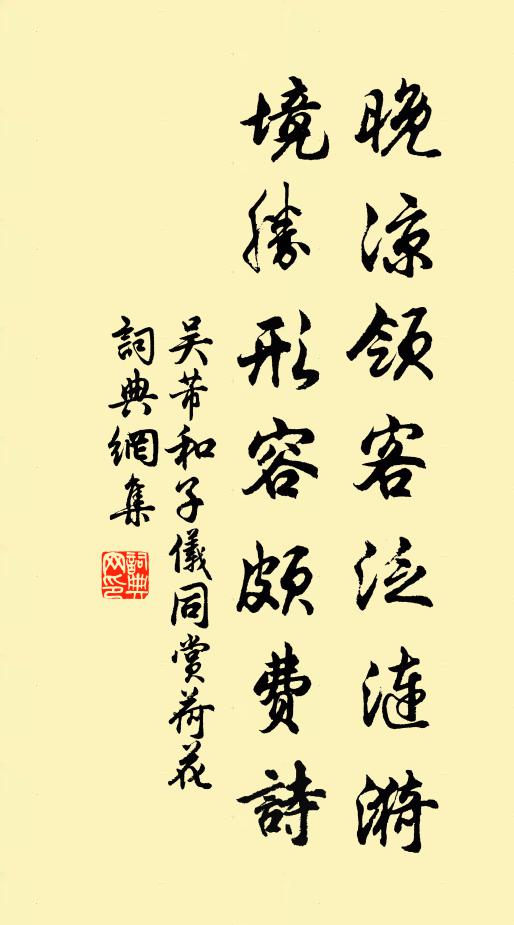 晚涼領客泛漣漪
境勝形容頗費詩
吳芾和子儀同賞荷花
詞典網集
詞典網印